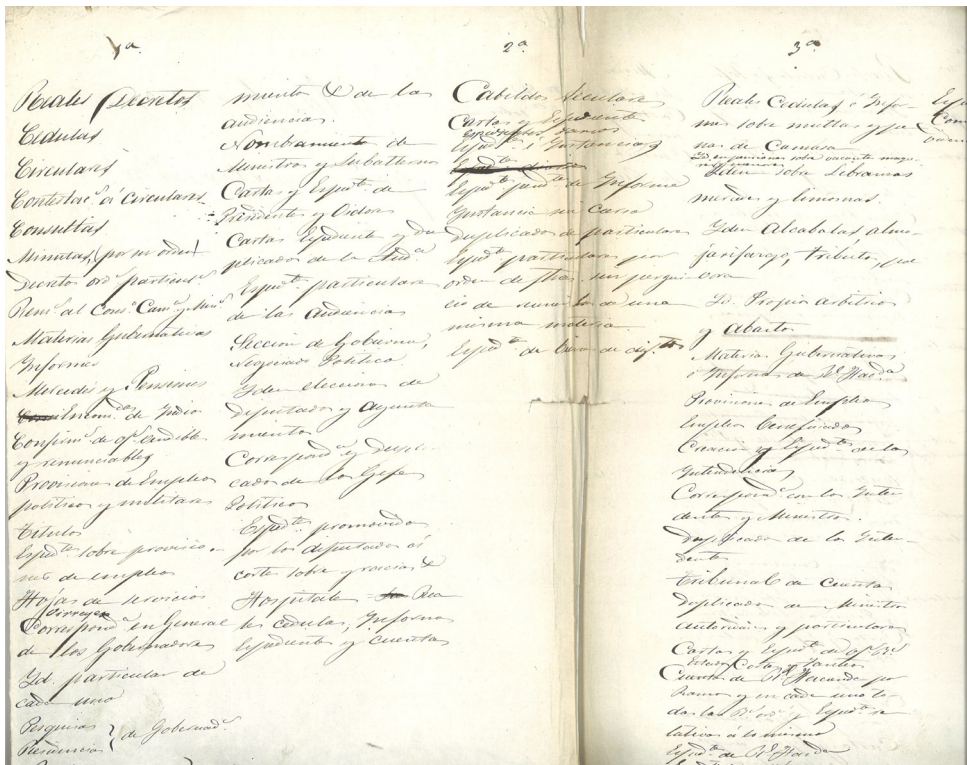 1ª
Reales Decretos
Cedulas
Circulares
Contestac.s á Circulares
Consultas
Minutas (por su orden)
Decretos ord.s particul.s
Rem.s al Cons.º Cam.ª y Min.º
Materias Gubernativas
Informes
Mercedes y Pensiones
Encom.das de Indios
Confirm.s de of.s vendibles
y renunciables
Provisiones de Empleos
politicos y militares
Titulos
Exped.tes sobre provisio-
nes de empleos
Hojas de servicios
Virreyes
Correspond.ª en General
de los Gobernadores
Yd. particular de
cada uno
Pesquisas
Residencias } de Gobernad.s
miento & de las
Audiencias.
Nombramientos de
Ministros y Subalternos
Cartas y Exped.tes de
Presidentes y Oidores
Cartas Expedientes y Du-
plicados de la Aud.ª
Exped.tes particulares
de las Audiencias
Seccion de Gobierno,
Negociado Politico.
Yden elecciones de
diputados y Ayunta
mientos
Correspond.ª y Dupli-
cados de los Gefes
Politicos
Exped.tes promovidos
por los diputados á
cortes sobre gracias &
Hospitales Rea
les cedulas, Informes
Expedientes y cuentas
2ª
Cabildos Seculares
Cartas y Expedientes
Exped.tes é Instancias
Exped.tes de Informe
Instancias sin curso
Duplicados de particulares
Exped.tes particulares por
orden de fhas. sin perjui-
cio de reunir los de una
misma materia.
Exped.tes de
3ª
Reales Cedulas é Infor-
mes sobre multas y pe-
nas de Camara
Yden sobre Libranzas
mercedes y limosnas.
Yden Alcabalas, almo-
jarifazgo, tributos,
Yd. Propios arbitrios
y Abastos
Materias Gubernativas
é Informes de R.l Haz.da
Provisiones de Empleos
Empleos beneficiados
Creacion y Exped.tes de las
Intendencias
Correspond.ª con los Inten
dentes y Ministros.
Duplicados de los Inten-
dentes
Tribunal de Cuentas
Duplicados de Ministros
y particulares
Cartas y Exped.tes de of.s R.s
Cuentas de R.l Hacienda por
Ramos y en cada uno to
das las R.s ord.s y Exped.tes re
lativos a lo mismo
Exped.tes de R.l Haz.da